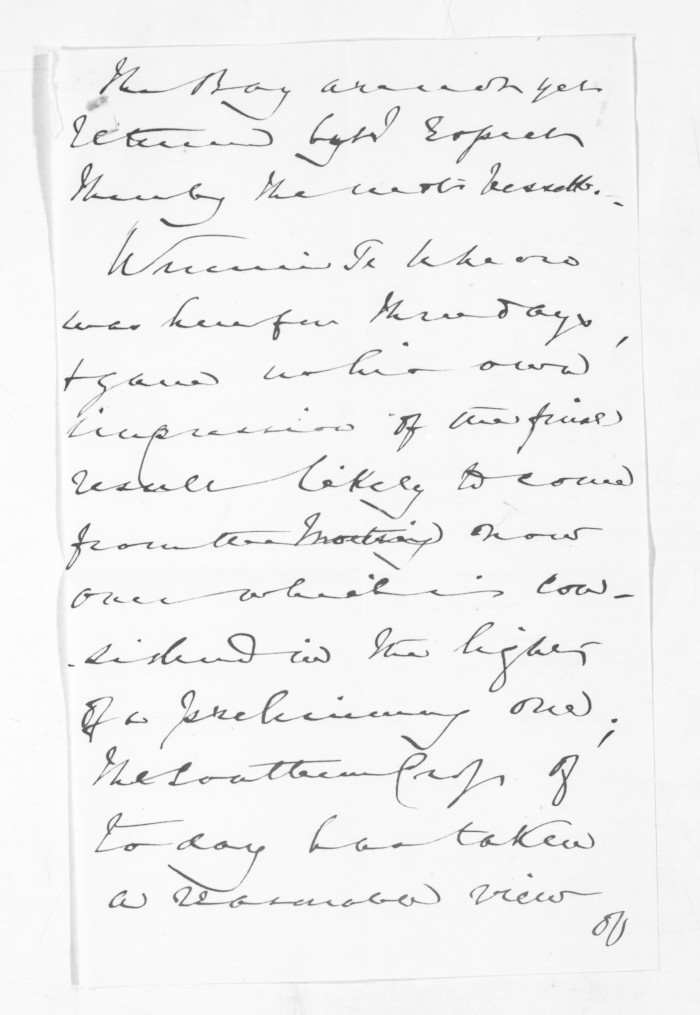 The Bay are not yet
returned but I expect
them by the next vessell. -
Wiremu Te Wheoro
was here for three days,
+ gave us his own
impression of the final
result likely to come
from the Meeting now
over which is con-
-sidered in the light
of a preliminary one,
The Southern Cross of
to day has taken
a reasonable view
of